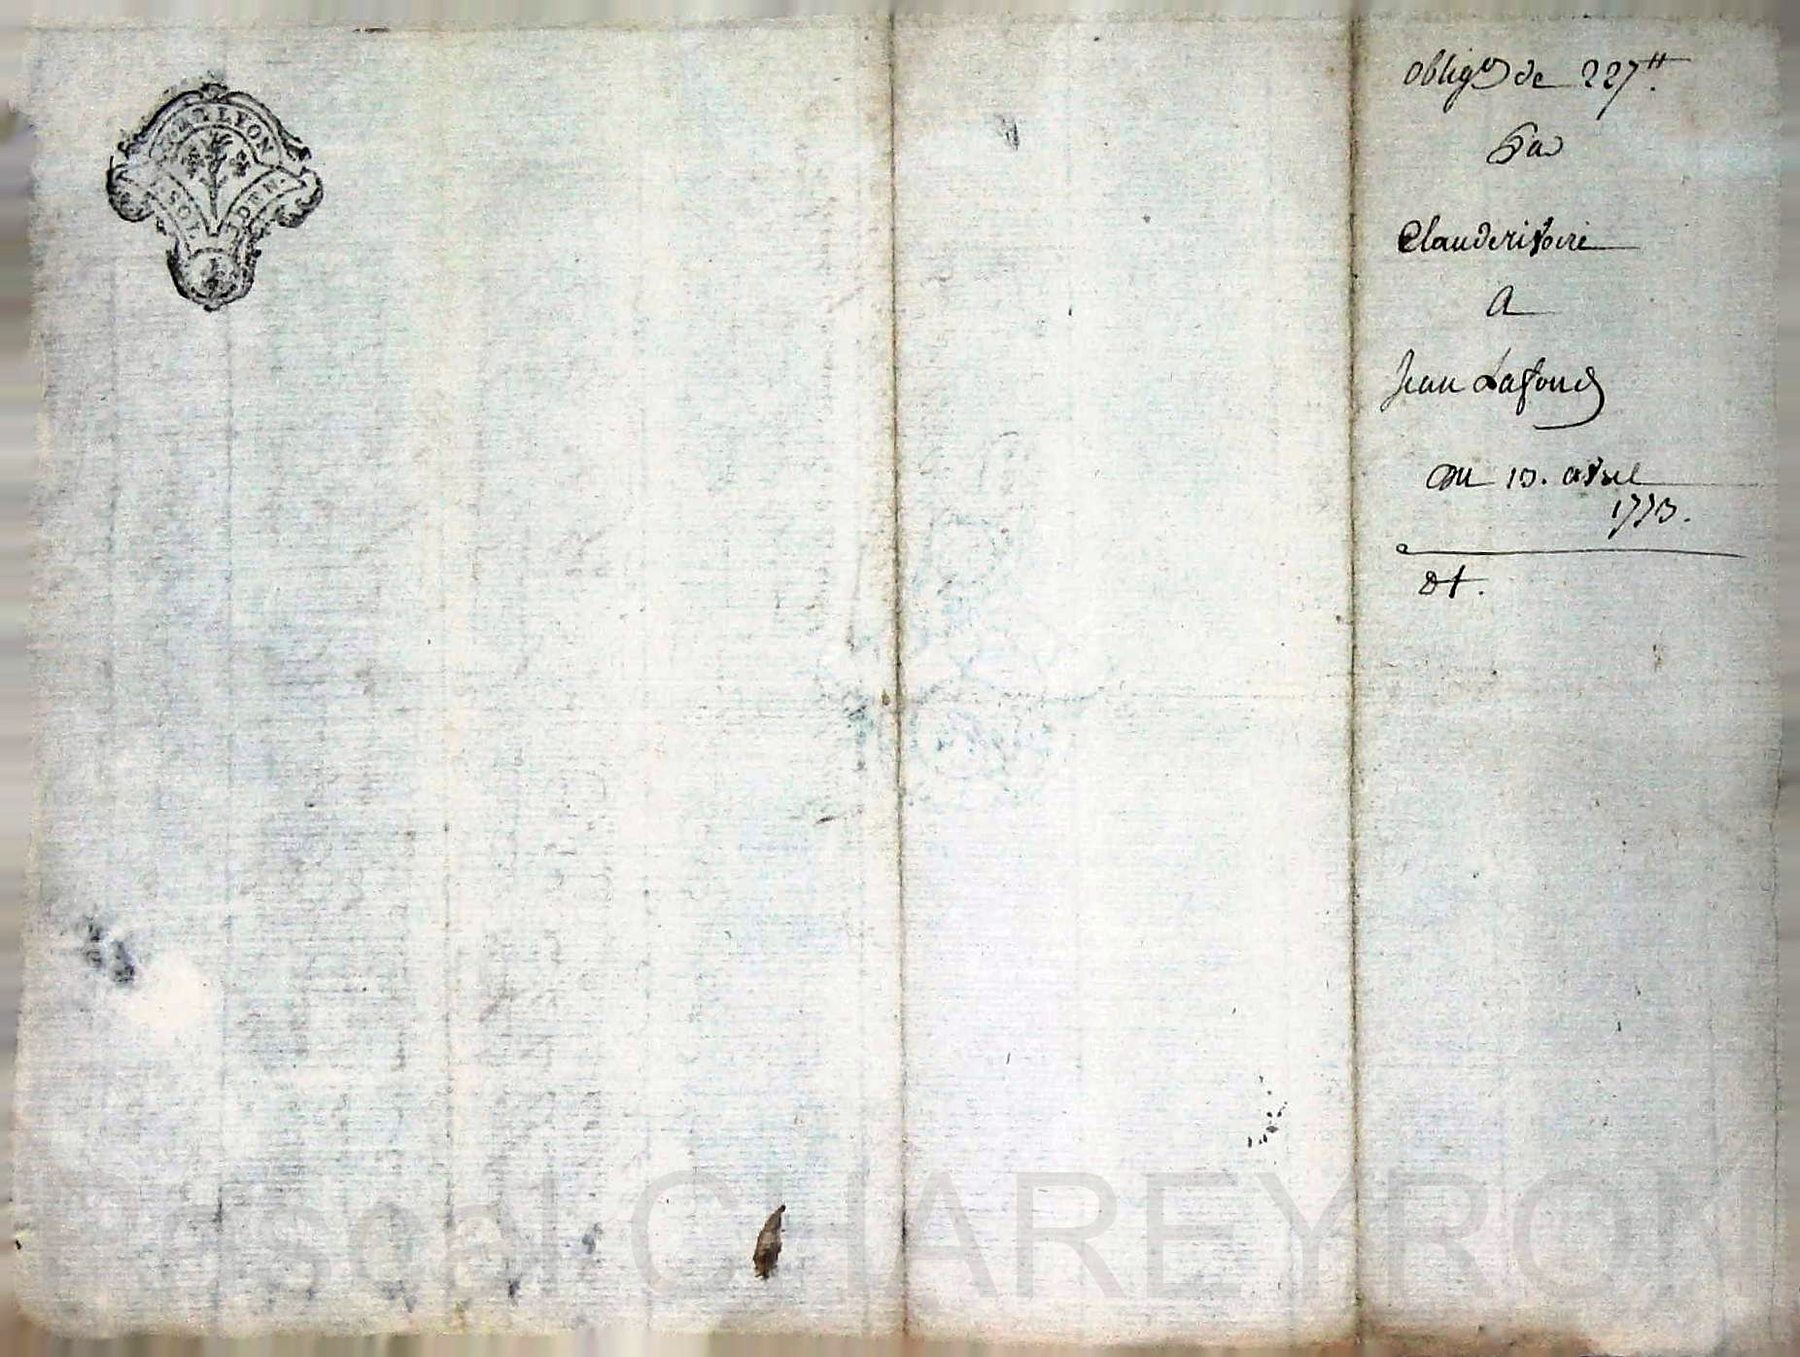 LYON
SOL
DEN
oblig.on de 227 ₶.
Par
Claude rivoire
A
Jean Lafond
Du 13. avril
1773.
dt.
Pascal CHAREYRON